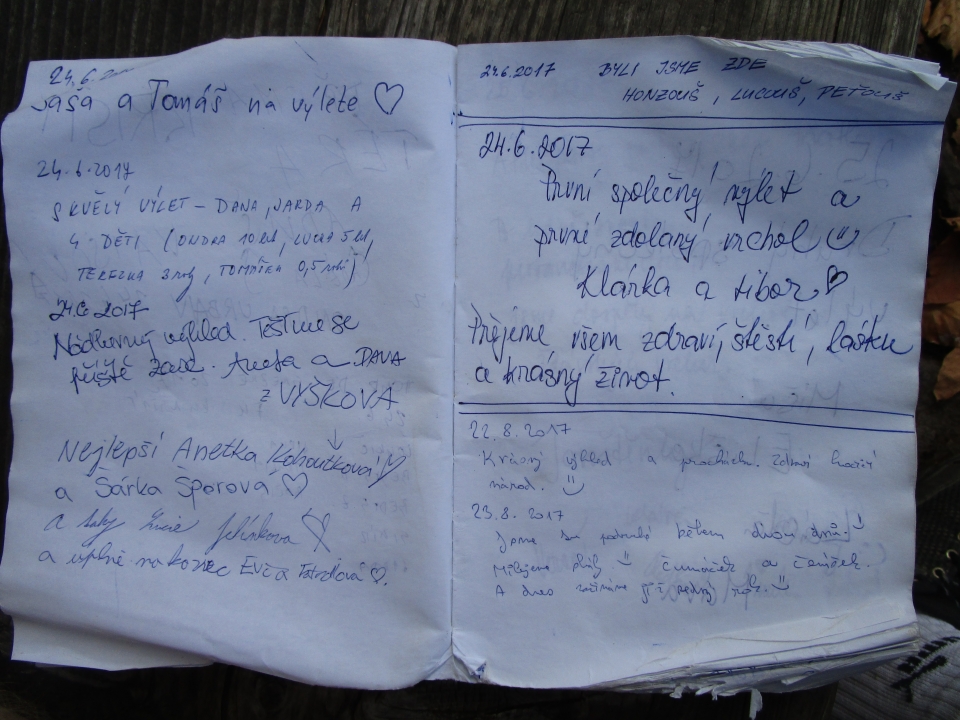 24.6.
Jaša a Tomáš na výletě ♡
24.6.2017
SKVĚLÝ VÝLET – DANA, JARDA A
4 DĚTI (ONDRA 10 let, LUCIA 5 let,
TEREZKA 3 roky, TOMÁŠKA 0,5 roku)
24.6 2017
Nádherný výhled. Těšíme se
příště zase. Aneta a DANA
z VYŠKOVA
Nejlepší Anetka Kohoutková! ♡
a Šárka Šporová ♡
a taky Lucie Jelínkova ♡
a úplně nakonec Evča ♡.
24.6.2017 BYLI JSME ZDE
HONZOUŠ, LUCOUŠ, PEŤOUŠ
24.6.2017
První společný výlet a
první zdolaný vrchol ☺
Klárka a Tibor ♡
Přejeme všem zdraví, štěstí, lásku
a krásný život.
22.8.2017
Krásný výhled a procházka. Zdraví
národ. ☺
23.8.2017
Jsme tu podruhé během dvou dnů. ☺
Milujeme ☺ čumáček a
A dnes začínáme již rok. ☺